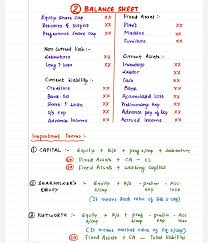 ② BALANCE SHEET
Equity share cap xx Fixed Assets :-
Reserves & surplus xx Plant xx
Preference share cap xx Machine xx
Furniture xx
Non Current Liab :-
Debentures xx Current Assets :-
Long T loan xx Inventories xx
Debtor xx
Current Liability :- Cash xx
Creditors xx Bank xx
Bank OD xx Accumulated Loss xx
Short T Loans xx Preliminary Exp xx
O/s Exp xx Advance pay of Exp xx
Advance Income xx Accrued Income xx
Important Terms :-
① CAPITAL :- Equity + R/s + pref s/cap + debenture
OR Fixed Assets + CA - CL
OR Fixed Assets + Working Capital
② SHAREHOLDER'S Equity + R/s + prelim - Acc
s/cap Exp Loss
(It means Book value of EQ s-cap)
③ NETWORTH :- Equity + R/s + Prelim - Acc
s/cap Exp Loss
(It means market value of EQ s/cap)
OR Fixed Assets + CA - Total Liability